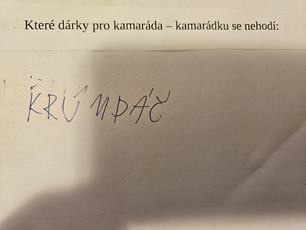 Které dárky pro kamaráda – kamarádku se nehodí:
KRŮMPÁČ